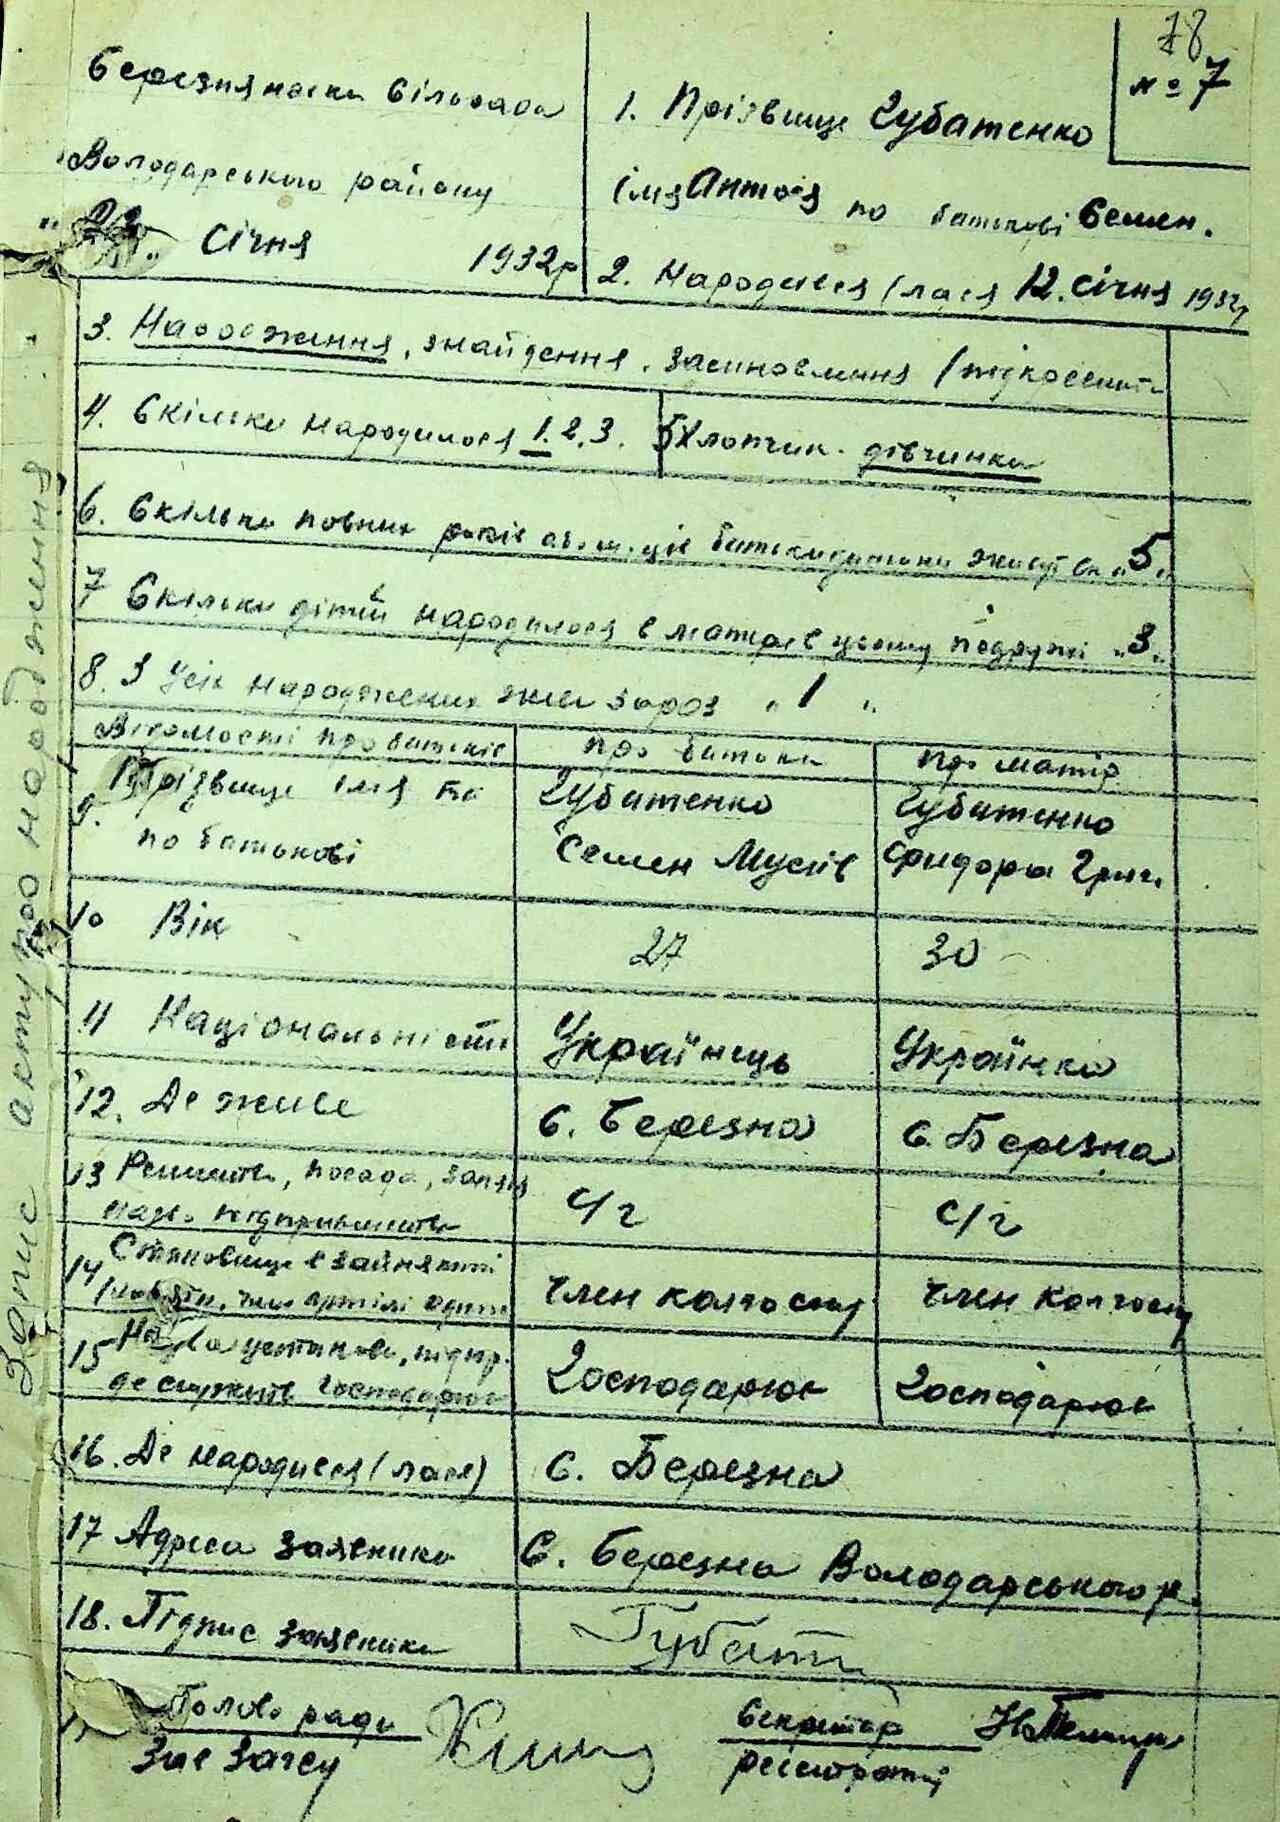 78
№ 7
Березнянська Сільрада
Володарського району
„22„ Січня 1932р
1. Прізвище Губатенко
імя Антося по батькові Семен.
2. Народився (лася 12. січня 1932р
Запис акту про народження
3. Народження, знайдення, засиновлення (підкреслить
4. Скільки народилося 1. 2. 3.
5 Хлопчик. дівчинка
6. Скільки повних років батьки дитини живуть „5„
7 Скільки дітей народилося в матері в цьому подружі „3„
8. З усіх народжених живі зараз „1„
Відомості про батьків
про батька
про матір
9. Прізвище імя та
по батькові
Губатенко
Семен Мусіїв
Губатенко
Григ.
10 Вік
27
30
11 Національність
Українець
Українка
12. Де живе
с. Березна
с. Березна
13 посада,
підприємства
с/г
с/г
14 Становище в занятті
член артілі
член колгоспу
член колгоспу
15 Назва установи, підпр.
де служить господарює
Господарює
Господарює
16. Де народився (лася)
с. Березна
17 Адреса заявника
с. Березна Володарського р.
18. Підпис заявника
Губат
Голова ради
Зав Загсу
Секретар
реєстратор